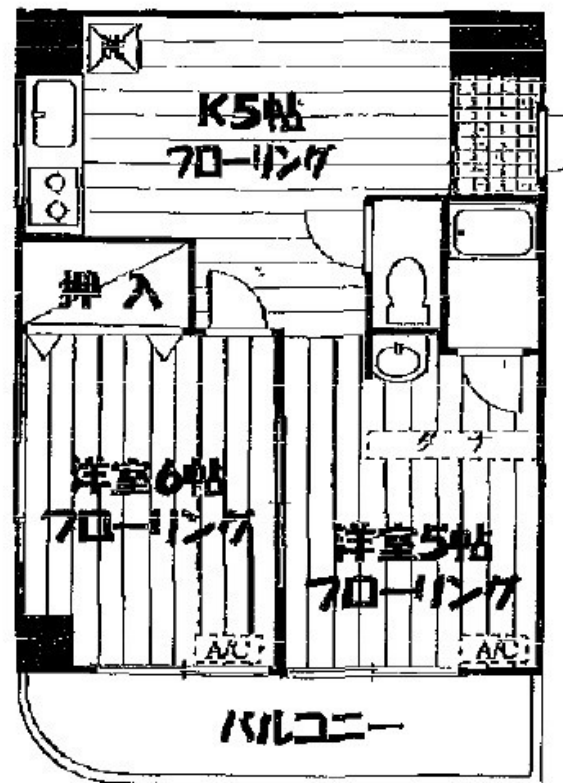 洗
K5帖
フローリング
押入
タナ
洋室6帖
フローリング
洋室5帖
フローリング
A/C
A/C
バルコニー